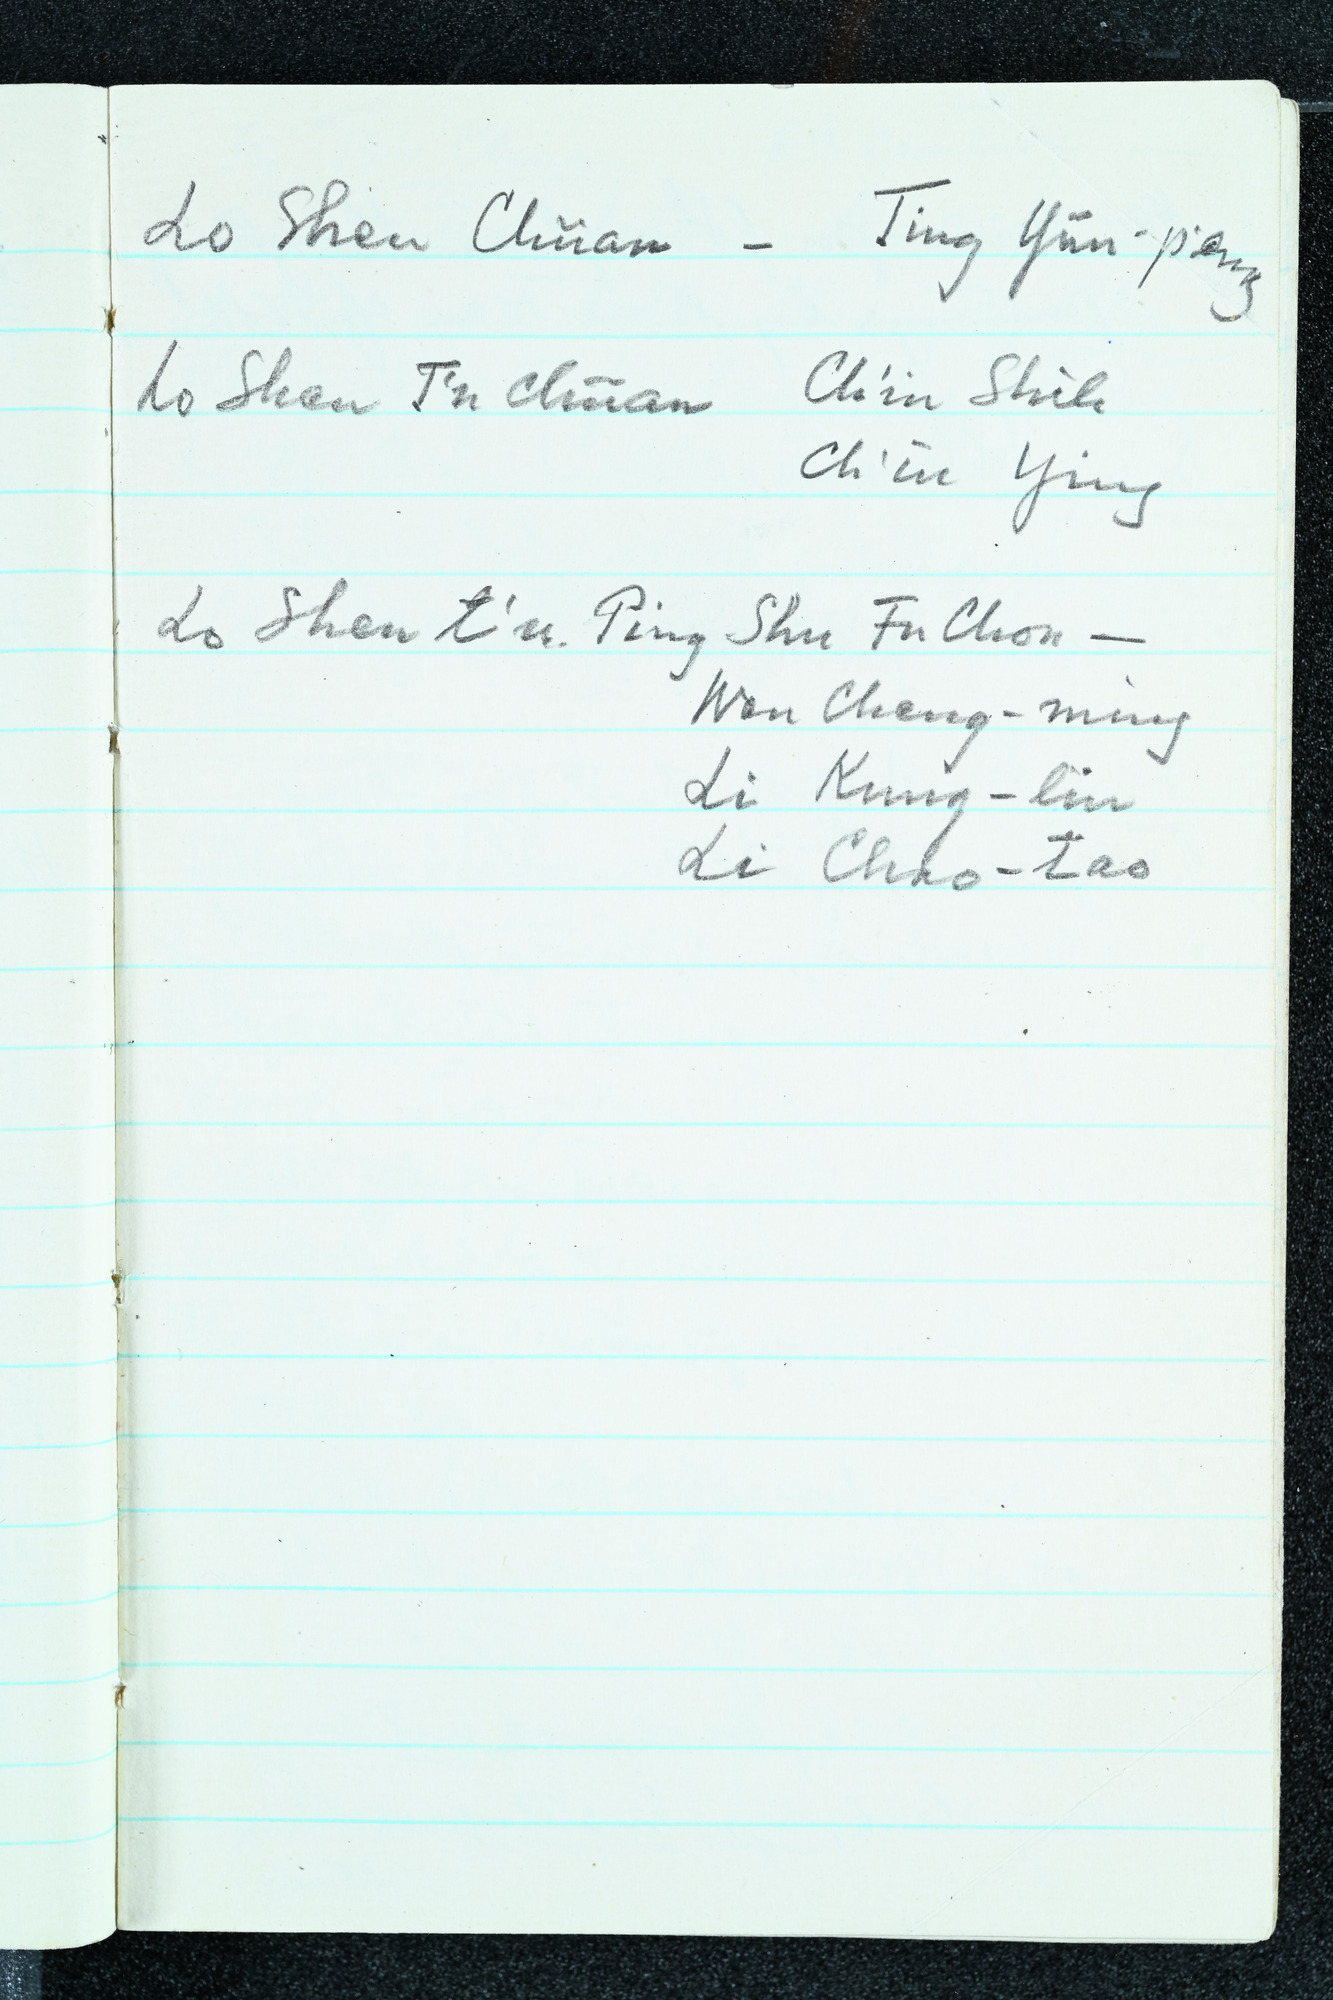 Lo Shen Chüan - Ting Yün-p'eng
Lo Shen T'u chüan Ch'in Shih
Ch'iu Ying
Lo Shen t'u. Ping Shu Fu Chou —
Wen Cheng-ming
Li Kung-lin
Li Chao-tao